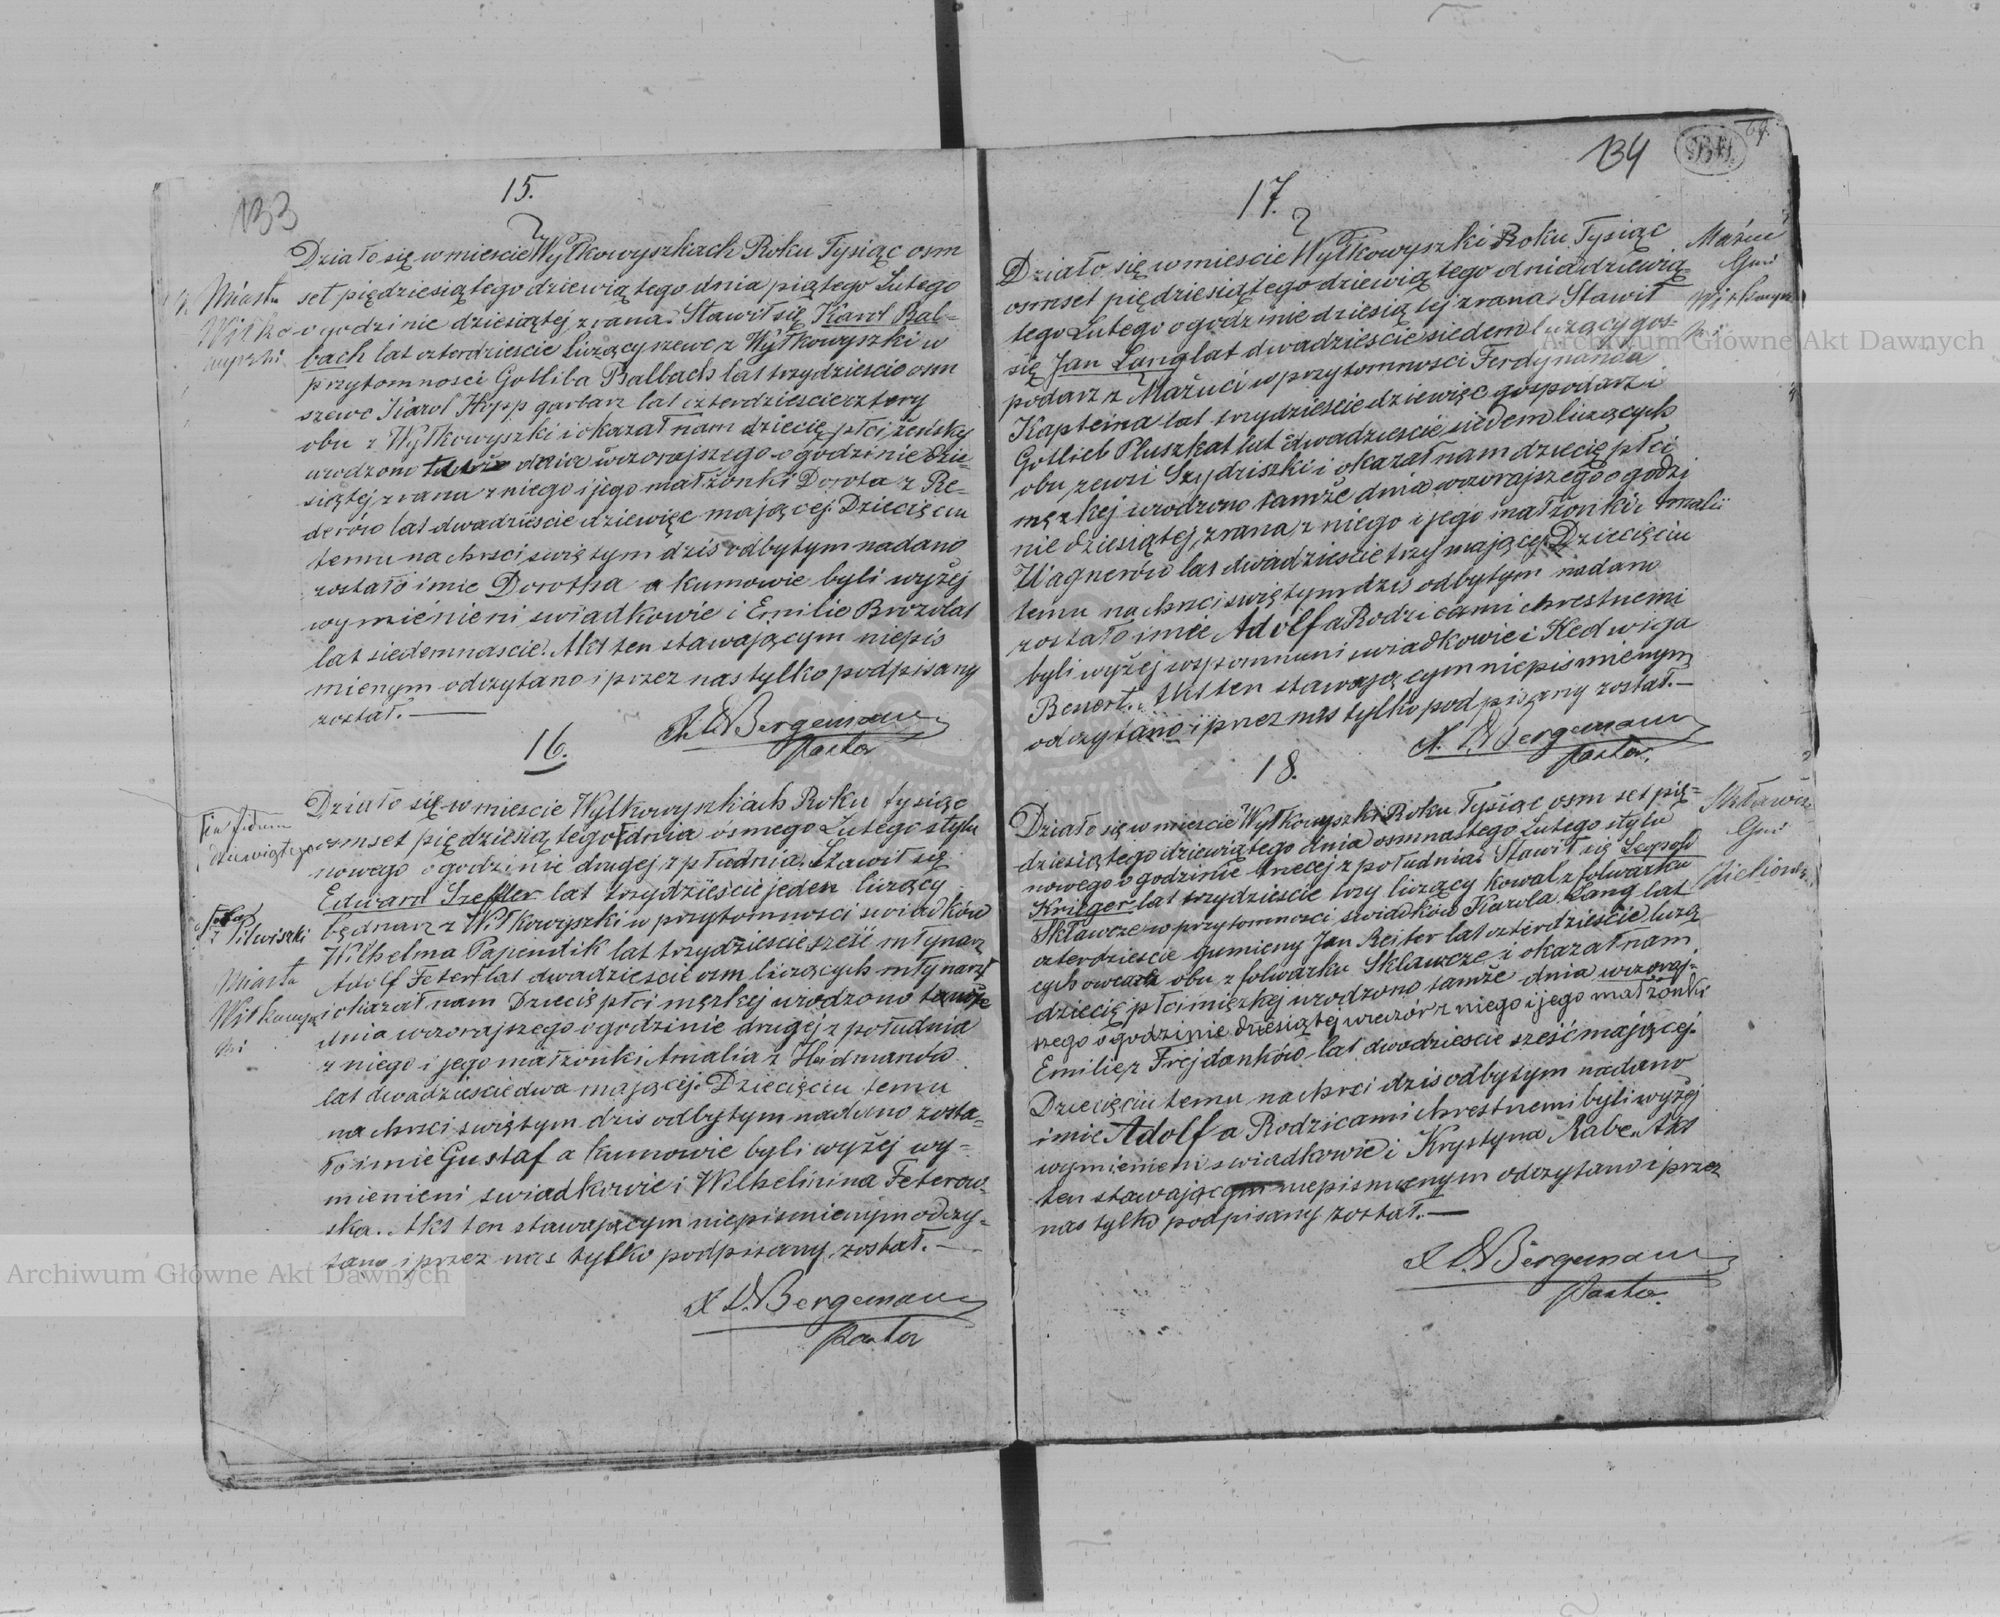 133
15.
Działo się w miescie Wyłkowyszkach Roku Tysiąc osm
set piędziesiątego dziewiątego dnia piątego Lutego
o godzinie dziesiątej z rana. Stawił się Karol Bal-
bach lat czterdzieście liczący szewc z Wyłkowyszki w
przytomnosci Gotliba Balbach lat trzydzieście osm
szewc Karol Hipp garbarz lat czterdzieście cztery
obu z Wyłkowyszki i okazał nam dziecię płci żeńsky
urodzono tamże dnia wczorajszego o godzinie dzie-
siątej z rana z niego i jego małżonki Dorota z Re-
derów lat dwadzieście dziewięc mającej. Dziecięciu
temu na chrzci swiętym dzis odbytym nadano
zostało imie Dorotha a kumowie byli wyżej
wymienieni swiadkowie i Emilie
lat siedemnascie. Akt ten stawającym niepis
mienym odczytano i przez nas tylko podpisany
został.
Bergemann
Pastor
Miasta
Wiłko
wyszki
16.
Działo się w miescie Wyłkowyszkach Roku tysiąc
osmset piędziesiątego dnia ósmego Lutego stylu
nowego o godzinie drugej z płudnia. Stawił się
Edward Sreffler lat trzydzieście jeden liczący
bednarz z Wiłkowyszki w przytomnosci swiadków
Wilhelma Papendik lat trzydzieście sześć młynarz
Adolf Feter lat dwadzieście osm liczących młynarz
i okazał nam Dziecię płci męzkej urodzono tamże
dnia wczorajszego o godzinie drugej z południa
z niego i jego małżonki Amalia z Hidmanów
lat dwadzieście dwa mającej. Dziecięciu temu
na chrzci swiętym dzis odbytym nadano zosta-
ło imie Gustaf a kumowie byli wyżej wy-
mienieni swiadkowie i Wilhelmina Feterow-
ska. Akt ten stawającym niepismienym odczy-
tano i przez nas tylko podpisany został.
Bergemann
Pastor
dziewiątego
z Pilwiszki
Miasta
Wiłkowysz
ki
134
17.
Działo się w miescie Wyłkowyszki Roku Tysiąc
osmset piędziesiątego dziewiątego dnia dziewią-
tego Lutego o godzinie dziesiątej z rana. Stawił
się Jan Lang lat dwadzieście siedem liczący gos-
podarz z Mażuci w przytomnosci Ferdynanda
Kapteina lat trzydzieście dziewięc gospodarz i
Gotlieb Pluszkat lat dwadzieście siedem liczących
obu zewsi Szydziszki i okazał nam dziecię płci
męzkej urodzono tamże dnia wczorajszego o godzi
nie dziesiątej z rana z niego i jego małżonki Amalii
Wagnerów lat dwadzieście trzy mającej. Dziecięciu
temu na chrzci swiętym dzis odbytym nadano
zostało imie Adolf a Rodzicami chrestnemi
byli wyżej wspomnieni swiadkowie i Hedwiga
Benert. Akt ten stawającym niepismienym
odczytano i przez nas tylko podpisany został.
Bergemann
Pastor.
Mażuci
Gmi
18.
Działo się w miescie Wyłkowyszki Roku Tysiąc osm set pię-
dziesiątego dziewiątego dnia osmnastego Lutego stylu
nowego o godzinie trzecej z południa. Stawił się Leopold
Krieger lat trzydzieście trzy liczący kowal z folwarku
Skławcze w przytomnosci swiadków Karola Lang lat
czterdzieście gumieny Jan Reiter lat czterdzieście liczą
cych owczarz obu z folwarku Skławcze i okazał nam
dziecię płci męzkej urodzono tamże dnia wczoraj-
szego o godzinie dziesiątej wieczór z niego i jego małżonki
Emilie z Frejdanków lat dwadzieście sześć mającej.
Dziecięciu temu na chrzci dzis odbytym nadano
imie Adolf a Rodzicami chrestnemi byli wyżej
wymienieni swiadkowie i Krystyna Rabe. Akt
ten stawającym niepismienym odczytano i przez
nas tylko podpisany został.
Bergemann
Pastor.
Gmi
Archiwum Główne Akt Dawnych
Archiwum Główne Akt Dawnych